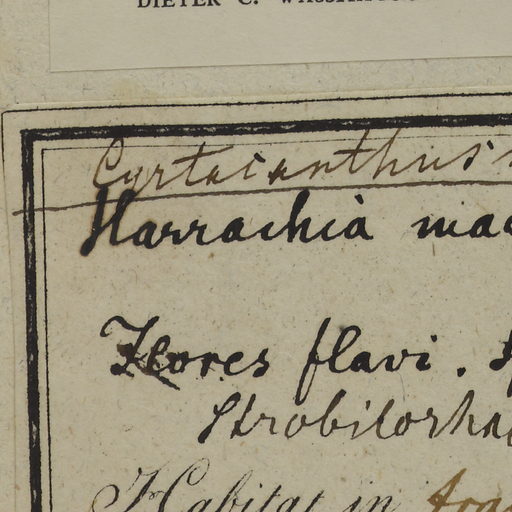 DIETER C.
Cyrtacanthus
Harrachia mac
Flores flavi.
Strobilorha
Habitat in